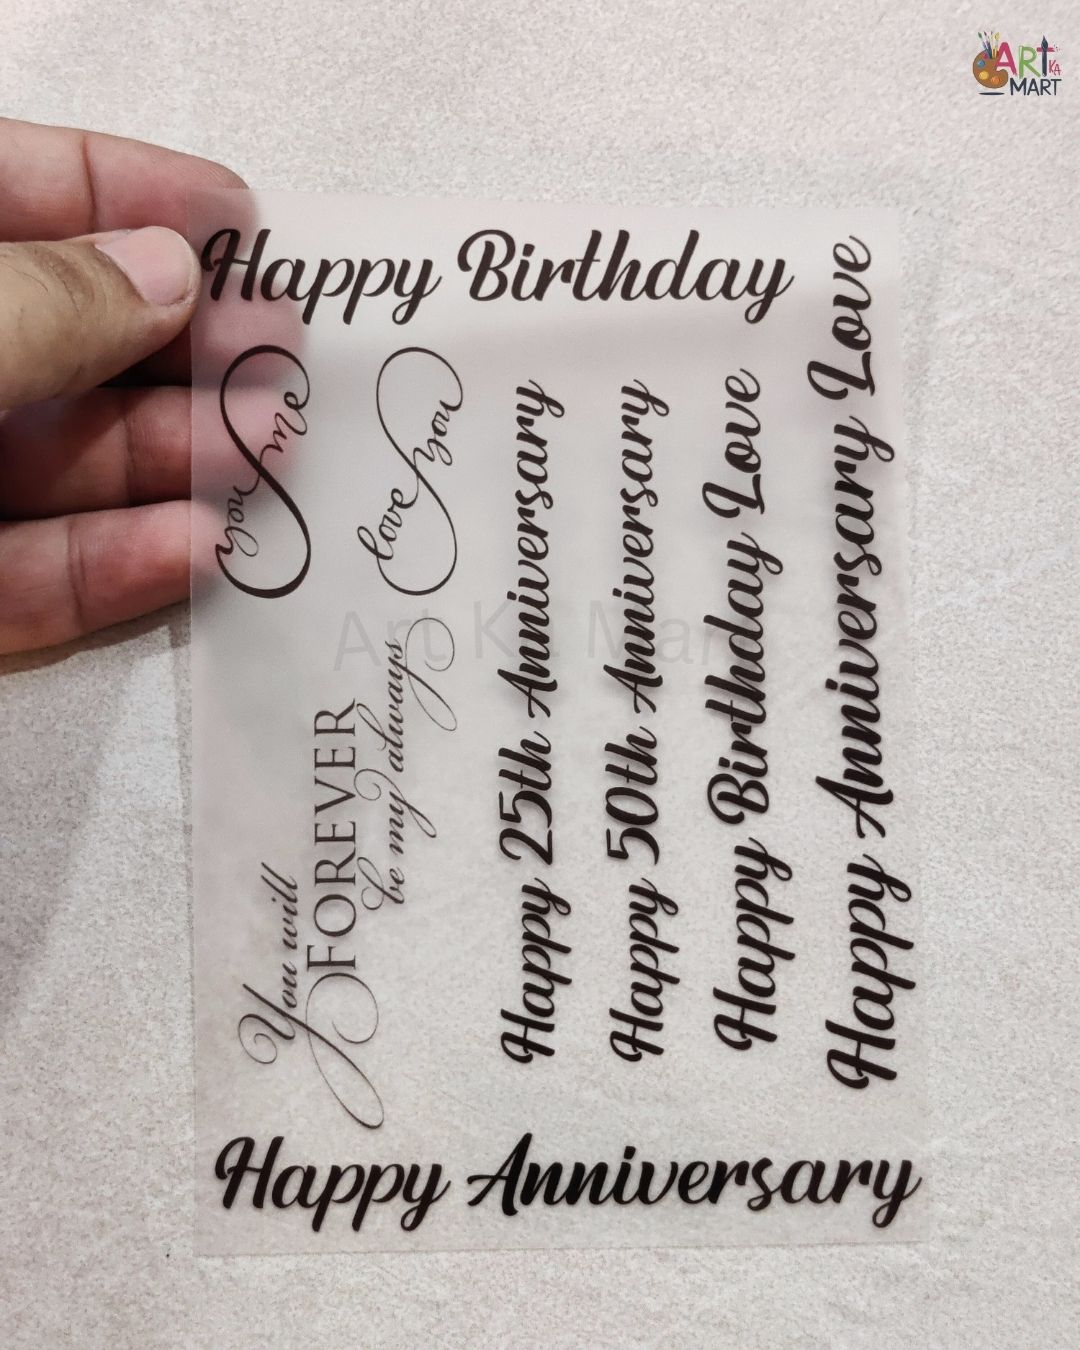 ART KA
MART
Happy Birthday
you me
love you
You will
FOREVER
be my always
Happy 25th Anniversary
Happy 50th Anniversary
Happy Birthday Love
Happy Anniversary Love
Art Ka Mart
Happy Anniversary